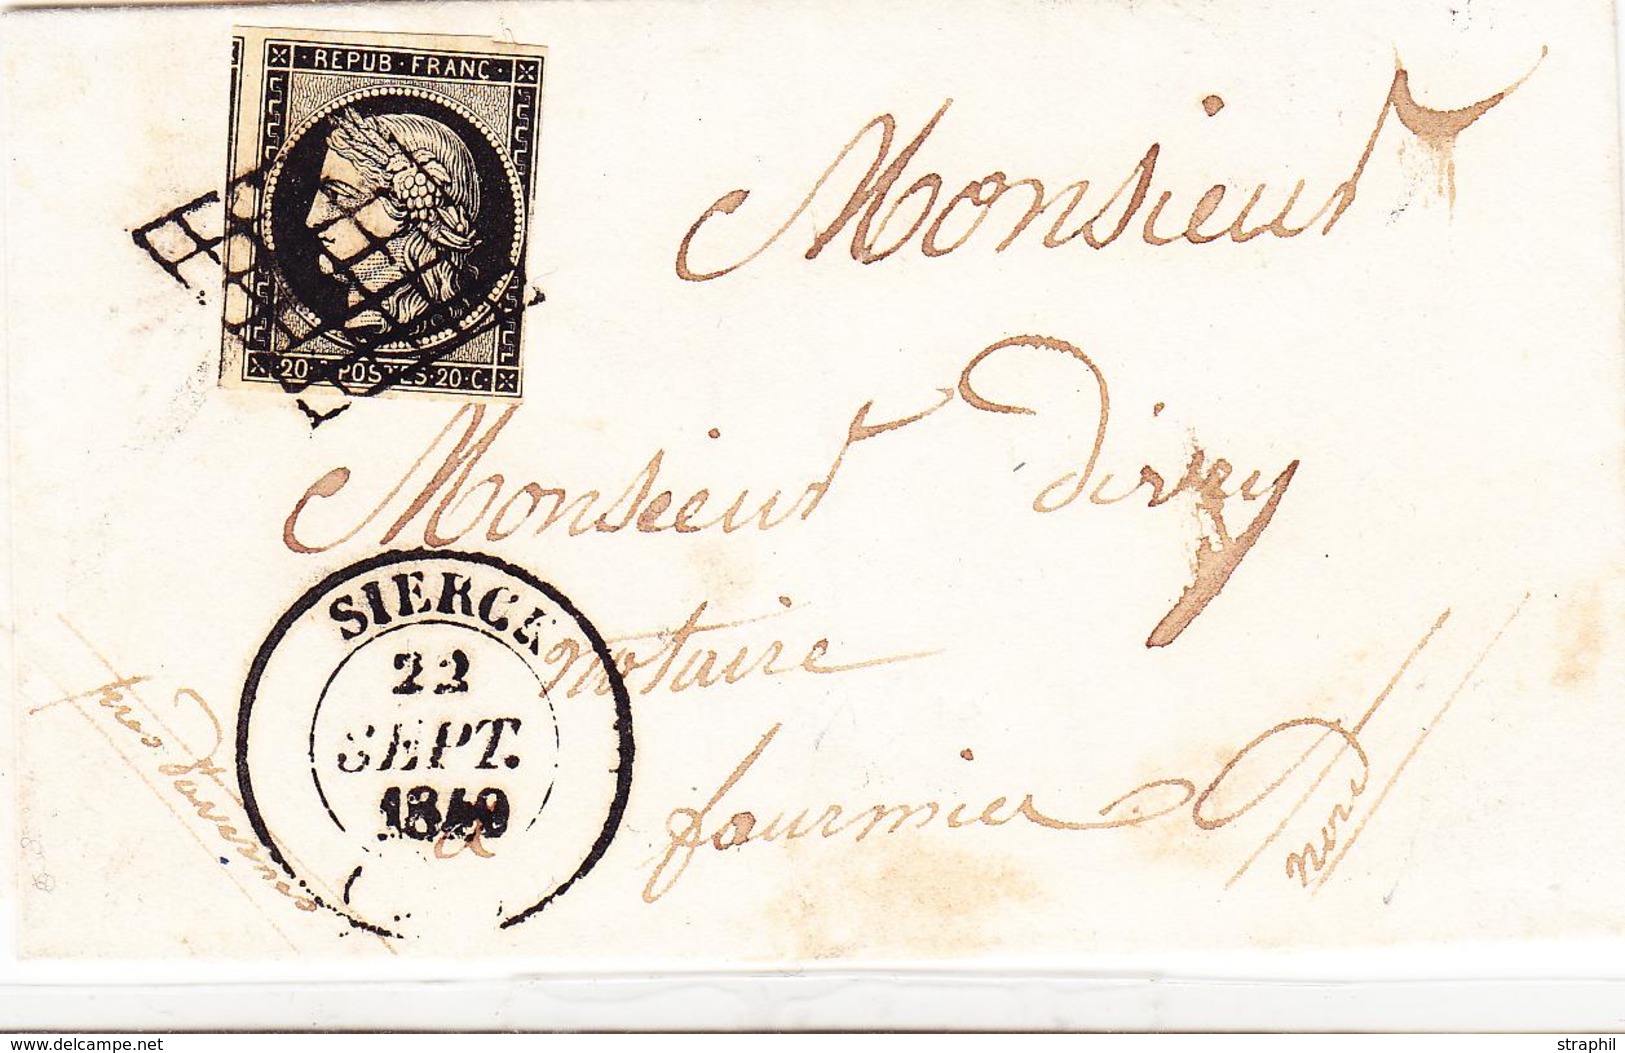 · REPUB · FRANC ·
· 20 · POSTES · 20 · C ·
Monsieur
Monsieur
notaire
SIERCK
22
SEPT.
1849
a
fourmies
près d'avesnes
nord
www.delcampe.net
straphil